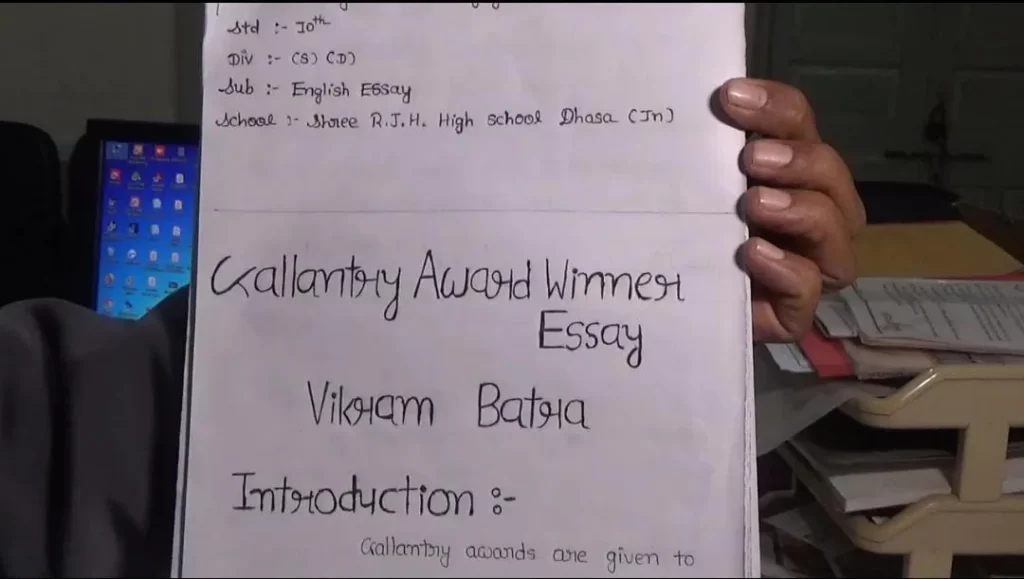 Std :- 10th
Div :- (S) (D)
Sub :- English Essay
School :- Shree R.J.H. High school Dhasa (Jn)
Gallantry Award Winner
Essay
Vikram Batra
Introduction :-
Gallantry awards are given to